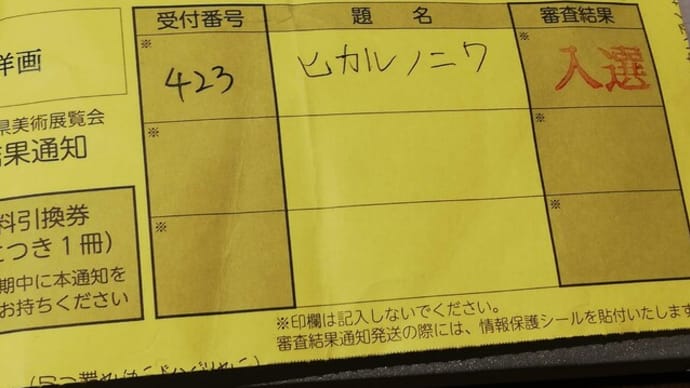 受付番号 題名 審査結果
洋画
※ 423 ヒカルノニワ ※ 入選
県美術展覧会
結果通知
※ ※
料引換券
につき1冊)
期中に本通知を
お持ちください
※ ※
※印欄は記入しないでください。
審査結果通知発送の際には、情報保護シールを貼付いたします